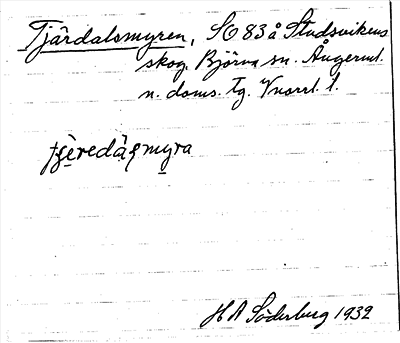 Tjärdalsmyren, SO 83 å Studsvikens
skog. Björna sn. Ångerml.
n. doms. tg. Vnorrl. l.
tjèredàlmyra
H A Söderberg 1932